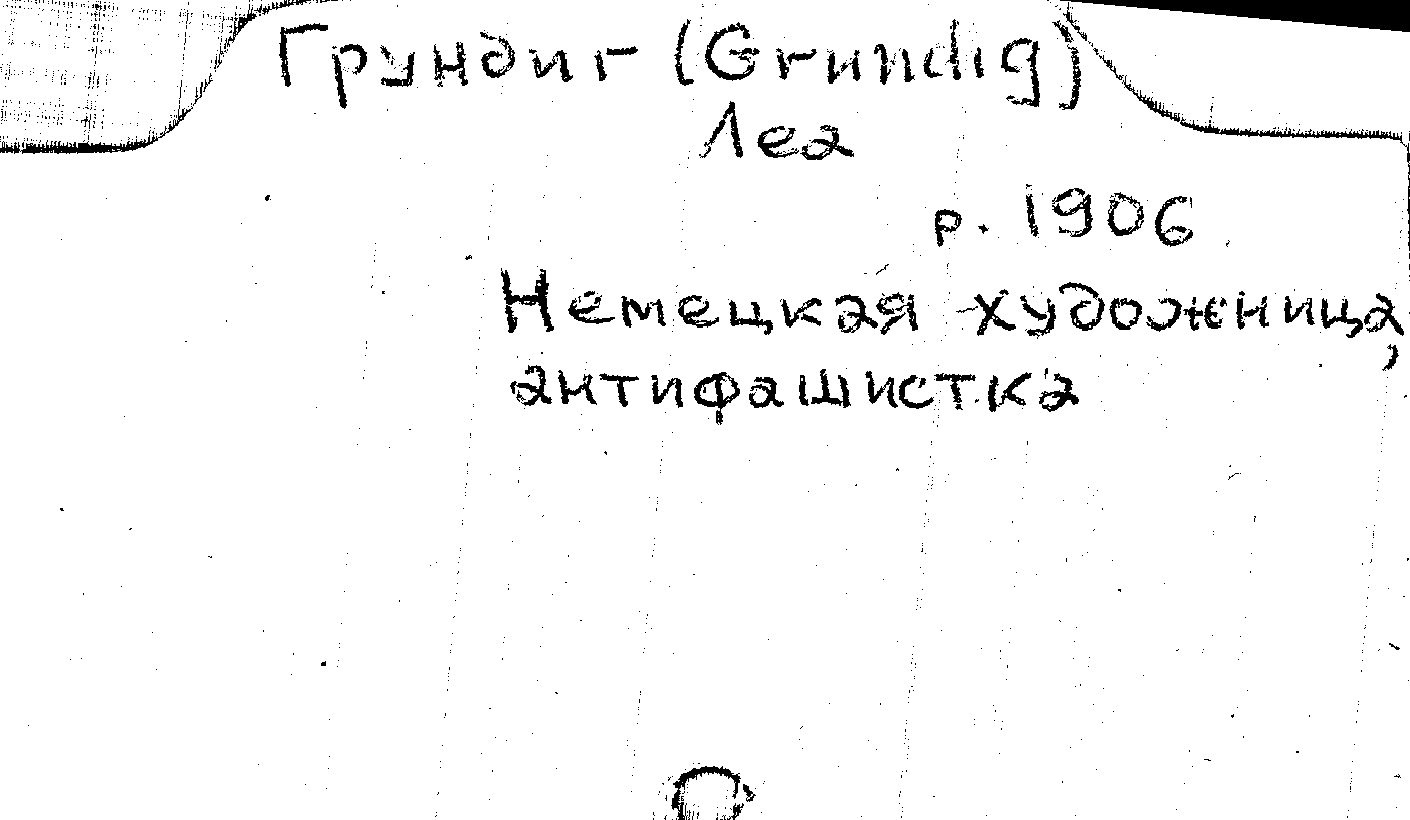 Грундиг (Grundig)
Леа
р. 1906
Немецкая художница,
антифашистка